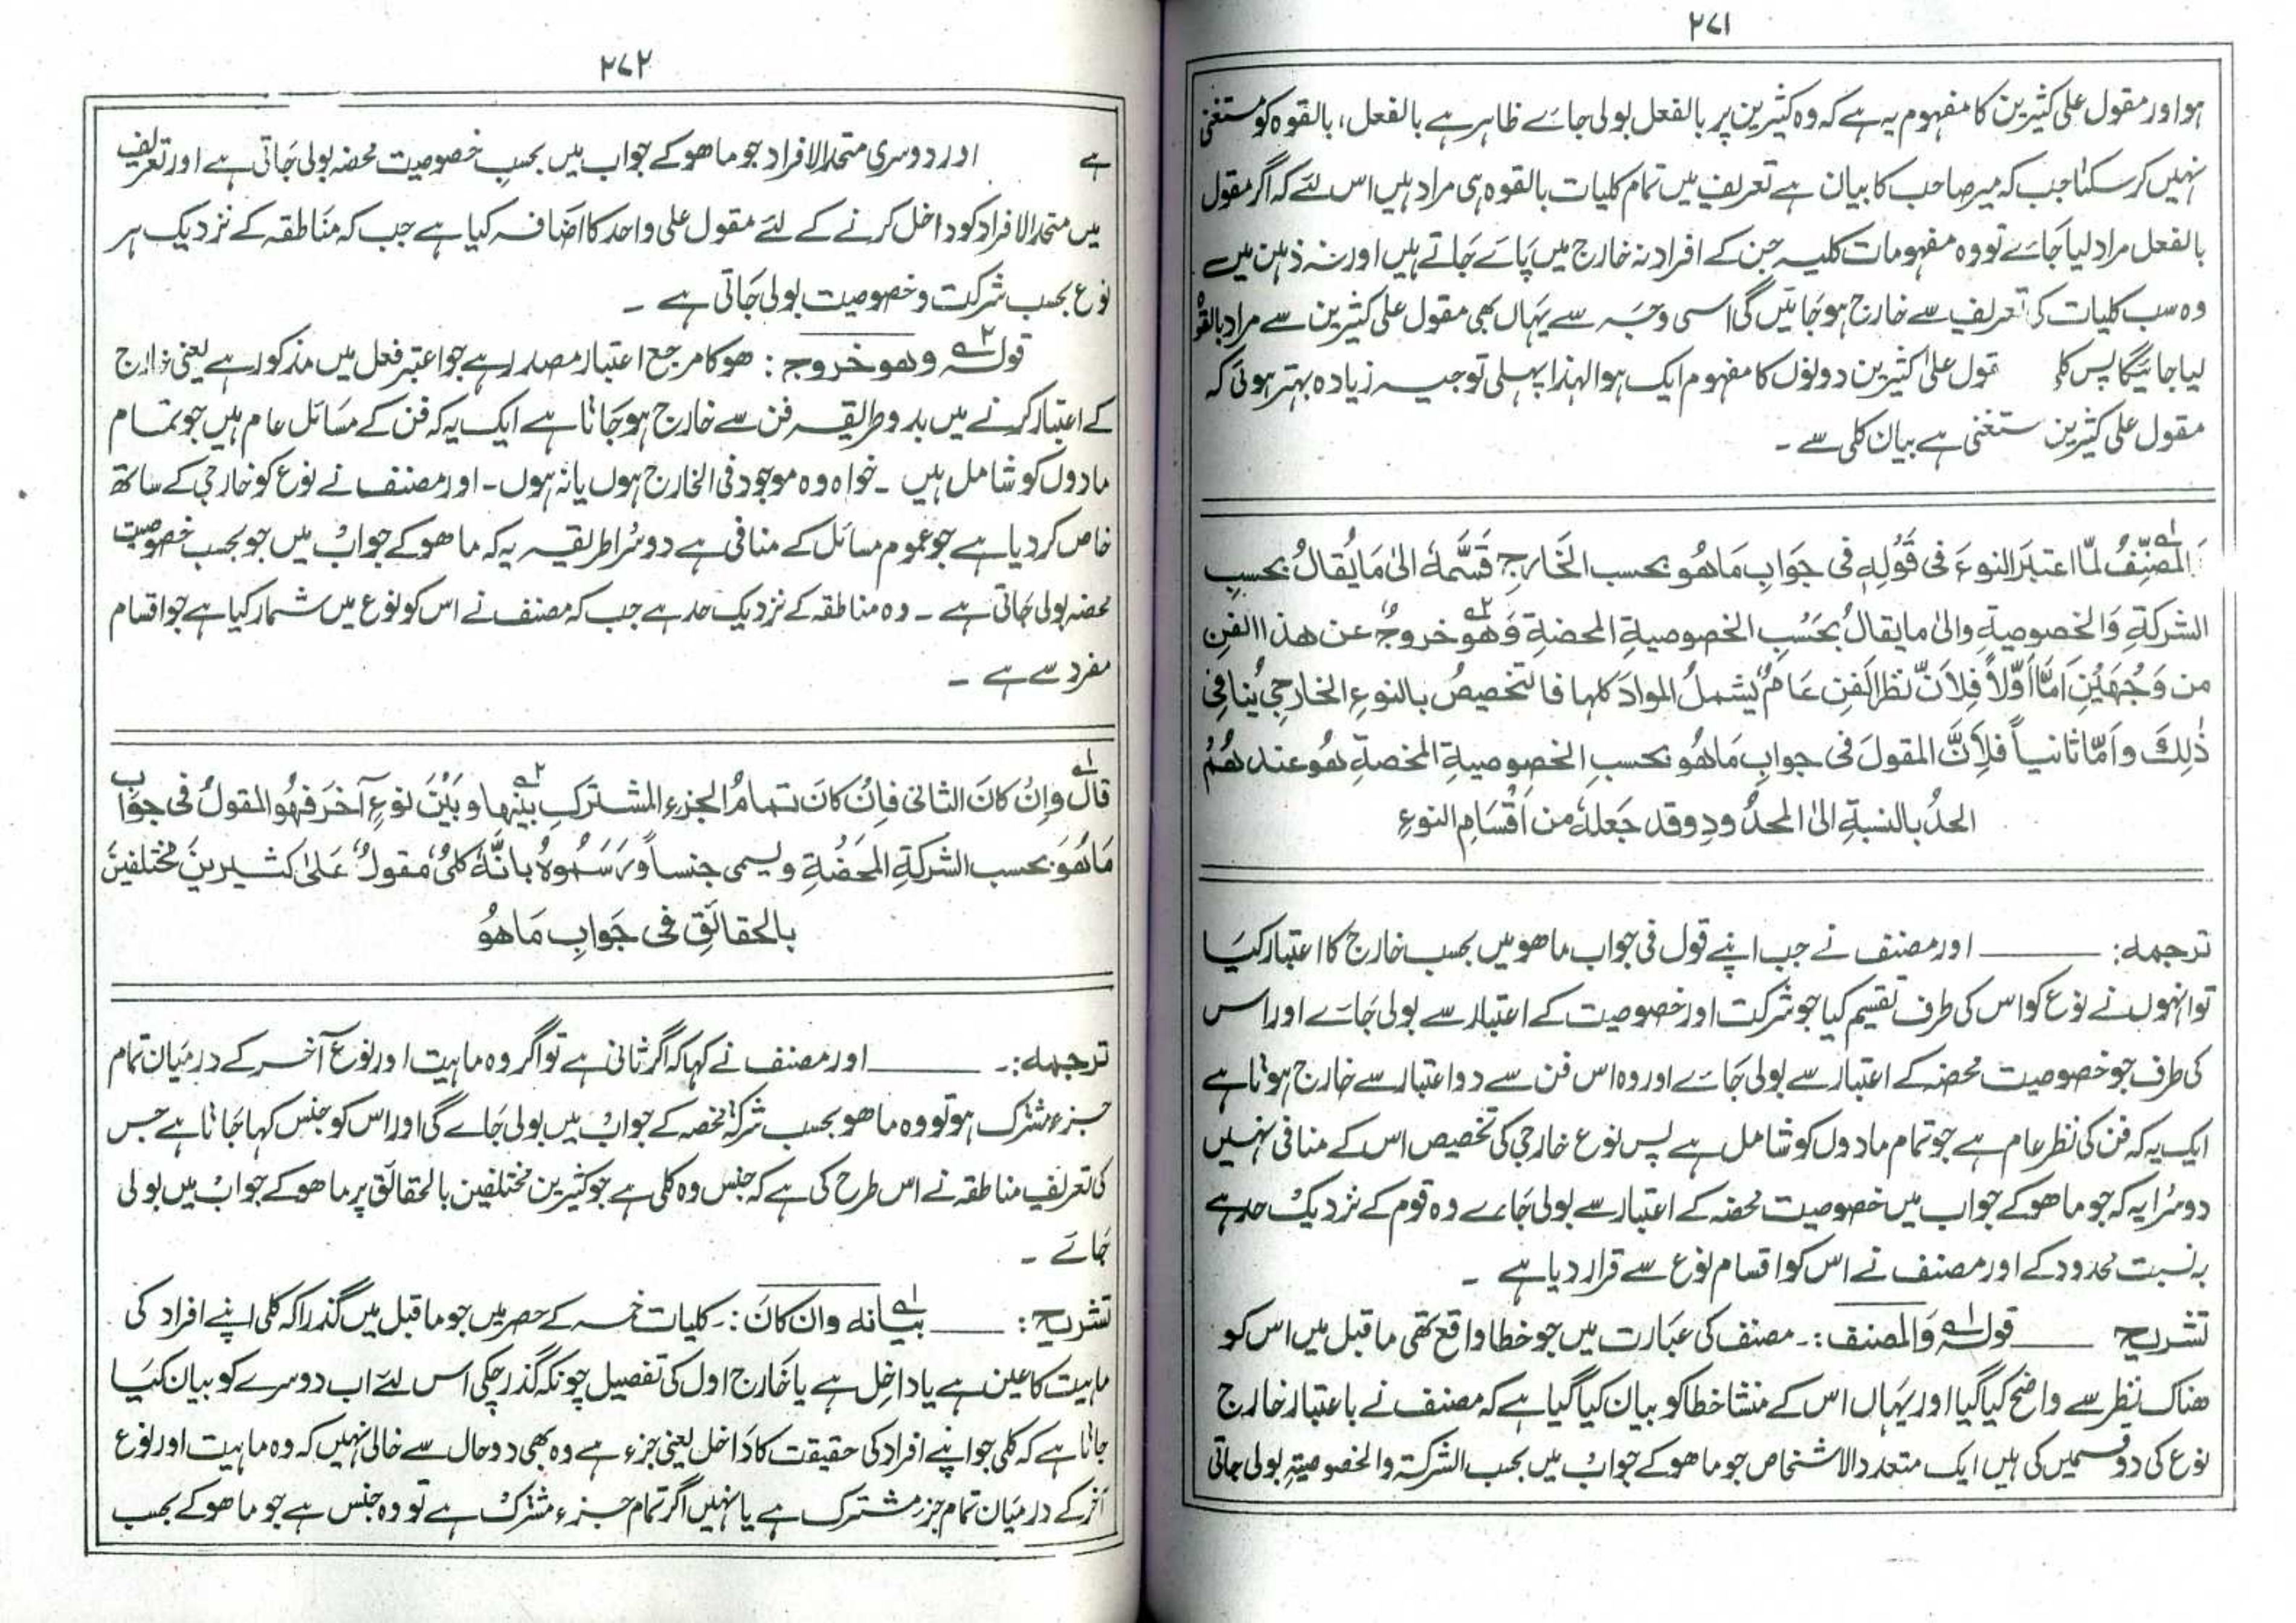 ۲۷۱
ہو اور مقول علی کثیرین کا مفہوم یہ ہے کہ وہ کثیرین پر بالفعل بولی جائے ظاہر ہے بالفعل، بالقوہ کو مستغنی
نہیں کر سکتا جب کہ میر صاحب کا بیان ہے تعریف میں تمام کلیات بالقوہ ہی مراد ہیں اس لئے کہ اگر مقول
بالفعل مراد لیا جائے تو وہ مفہومات کلیہ جن کے افراد نہ خارج میں پائے جاتے ہیں اور نہ ذہن میں
وہ سب کلیات کی تعریف سے خارج ہو جائیں گی اسی وجہ سے یہاں بھی مقول علی کثیرین سے مراد بالقوہ
لیا جائیگا پس قول علی کثیرین دونوں کا مفہوم ایک ہوا لہذا پہلی توجیہ زیادہ بہتر ہوئی کہ
مقول علی کثیرین ستغنی ہے بیان کلی سے ۔
المُصَنِّفُ لمّا اعتبَرَ النوعَ فی قَوْلِهٖ فی جَوَابِ مَاهُو بحسب الخَارجِ قَسَّمَهٗ الیٰ مَا يُقالُ بحسبِ
الشرکةِ وَالخصوصيةِ والیٰ مايقالُ بحَسْبِ الخصوصيةِ المحضةِ وَهُوَ۲ خروجٌ عن هذا الفنِ
من وَجْهَيْنِ اَمَّا اَوَّلاً فِلاَنَّ نظرَ الفنِ عَامٌ يشملُ الموادَ کلها فالتخصيصُ بالنوعِ الخارجيِ يُنافِی
ذٰلِكَ وَاَمَّا ثانياً فلِاَنَّ المقولَ فی جوابِ مَاهُو بحسبِ الخصوصيةِ المحضةِ هُوعندهُمُ
الحدُ بالنسبةِ الیٰ المحدُودِ وقد جَعلهٗ من اَقْسَامِ النوعِ
ترجمہ: ــــــ اور مصنف نے جب اپنے قول فی جواب ماھو میں بحسب خارج کا اعتبار کیا
تو انہوں نے نوع کو اس کی طرف تقسیم کیا جو شرکت اور خصوصیت کے اعتبار سے بولی جائے اور اس
کی طرف جو خصوصیت محضہ کے اعتبار سے بولی جائے اور وہ اس فن سے دو اعتبار سے خارج ہوتا ہے
ایک یہ کہ فن کی نظر عام ہے جو تمام مادوں کو شامل ہے پس نوع خارجی کی تخصیص اس کے منافی نہیں
دوسرا یہ کہ جو ماھو کے جواب میں خصوصیت محضہ کے اعتبار سے بولی جائے وہ قوم کے نزدیک حد ہے
بہ نسبت محدود کے اور مصنف نے اس کو اقسام نوع سے قرار دیا ہے ۔
تشریح ــــــ قولہ۱ والمصنف :۔ مصنف کی عبارت میں جو خطا واقع تھی ماقبل میں اس کو
ھناک نظر سے واضح کیا گیا اور یہاں اس کے منشا خطا کو بیان کیا گیا ہے کہ مصنف نے باعتبار خارج
نوع کی دو قسمیں کی ہیں ایک متعدد الاشخاص جو ماھو کے جواب میں بحسب الشرکۃ والخصوصیۃ بولی جاتی
۲۷۲
ہے اور دوسری متحد الافراد جو ماھو کے جواب میں بحسب خصوصیت محضہ بولی جاتی ہے اور تعریف
میں متحد الافراد کو داخل کرنے کے لئے مقول علی واحد کا اضافہ کیا ہے جب کہ مناطقہ کے نزدیک ہر
نوع بحسب شرکت و خصوصیت بولی جاتی ہے ۔
قولہ۲ وھو خروج : ھو کا مرجع اعتبار مصدر ہے جو اعتبر فعل میں مذکور ہے یعنی خارج
کے اعتبار کرنے میں بدو طریقہ فن سے خارج ہو جاتا ہے ایک یہ کہ فن کے مسائل عام ہیں جو تمام
مادوں کو شامل ہیں ۔ خواہ وہ موجود فی الخارج ہوں یا نہ ہوں ۔ اور مصنف نے نوع کو خارجی کے ساتھ
خاص کر دیا ہے جو عموم مسائل کے منافی ہے دوسرا طریقہ یہ کہ ماھو کے جواب میں جو بحسب خصوصیت
محضہ بولی جاتی ہے ۔ وہ مناطقہ کے نزدیک حد ہے جب کہ مصنف نے اس کو نوع میں شمار کیا ہے جو اقسام
مفرد سے ہے ۔
قال۱ وَاِنْ کَانَ الثانی فِاِنْ کَانَ تمامُ الجزءِ المشترکِ بينَها۲ وبَيْنَ نوعٍ آخَرَ فهُو المقولُ فی جوابِ
مَاهُوَ بحسب الشرکةِ المَحْضَةِ ويسمی جنساً وَرَسَمُوهُ بانَّهٗ کلیٌ مقولٌ عَلیٰ کثيرينَ مختلفينَ
بالحقائقِ فی جَوابِ مَاهُوْ
ترجمہ :۔ ــــــ اور مصنف نے کہا کہ اگر ثانی ہے تو اگر وہ ماہیت اور نوع آخر کے درمیان تمام
جزء مشترک ہو تو وہ ماھو بحسب شرکۃ محضہ کے جواب میں بولی جائے گی اور اس کو جنس کہا جاتا ہے جس
کی تعریف مناطقہ نے اس طرح کی ہے کہ جنس وہ کلی ہے جو کثیرین مختلفین بالحقائق پر ماھو کے جواب میں بولی
جائے ۔
تشریح : ــــــ بیانہ۱ وان کان :۔ کلیات خمسہ کے حصر میں جو ماقبل میں گذرا کہ کلی اپنے افراد کی
ماہیت کا عین ہے یا داخل ہے یا خارج اول کی تفصیل چونکہ گذر چکی اس لئے اب دوسرے کو بیان کیا
جاتا ہے کہ کلی جو اپنے افراد کی حقیقت کا داخل یعنی جزء ہے وہ بھی دو حال سے خالی نہیں کہ وہ ماہیت اور نوع
آخر کے درمیان تمام جزء مشترک ہے یا نہیں اگر تمام جزء مشترک ہے تو وہ جنس ہے جو ماھو کے بحسب